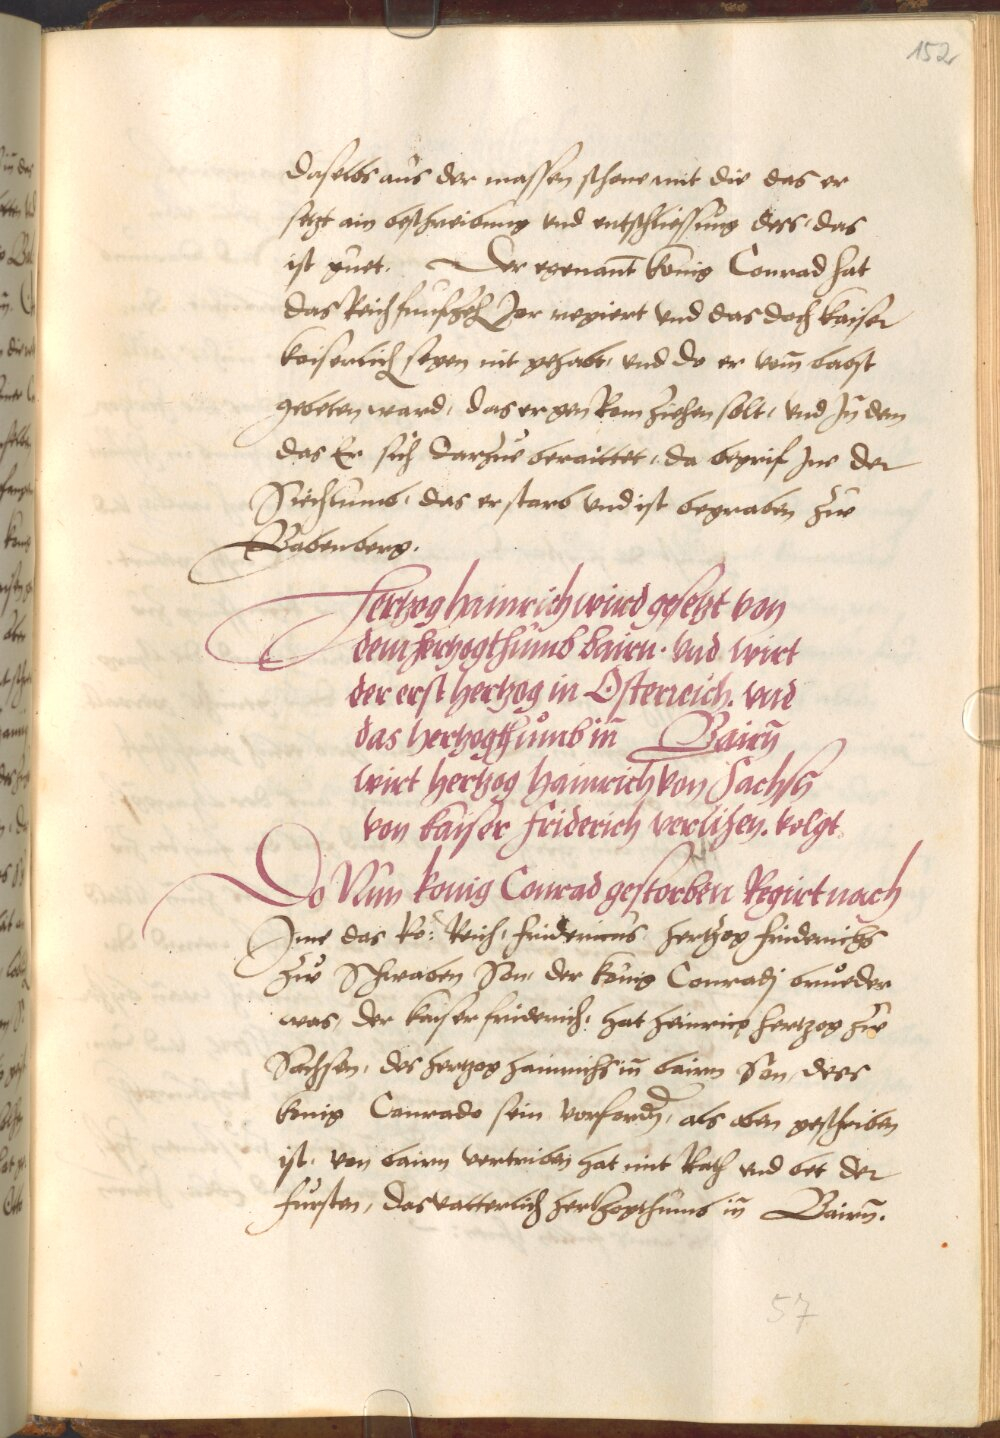 152
daselbs aus der massen schone mit die das er
setzt ain beschreibung vnd entschliessung dess, das
ist guet. Der egenant konig Conrad hat
das Reich funfzeh Jar regiert vnd das doch kaiser
kaiserlich segen nit gehabt, vnd do er vom babst
gebeten ward, das er gen Rom ziehen solt, vnd Jn dem
das Er sich darzue beraittet, da begrif Jne der
Siechtumb, das er starb vnd ist begraben zue
Babenberg.
Hertzog hainrich wird gesetzt von
dem hertzogthumb bairn. vnd wirt
der erst hertzog in Osterreich. vnd
das hertzogthumb in Bairn
wirt hertzog hainrich von Sachsn
von kaiser friderich verlihen. volgt
Do Nun konig Conrad gestorben Regirt nach
Jme das Ro: Reich, fridericus hertzog friderichs
zue Schwaben Son, der konig Conradj brueder
was, der kaiser friderich, hat heinrich hertzog zue
Sachsen, des hertzog hainrichs in bairn Son, dess
konig Conrado sein vorfordn, als oben geschriben
ist, von bairn vertriben hat mit Rath vnd bet der
fursten, das vatterlich hertzogthumb in Bairn.
57